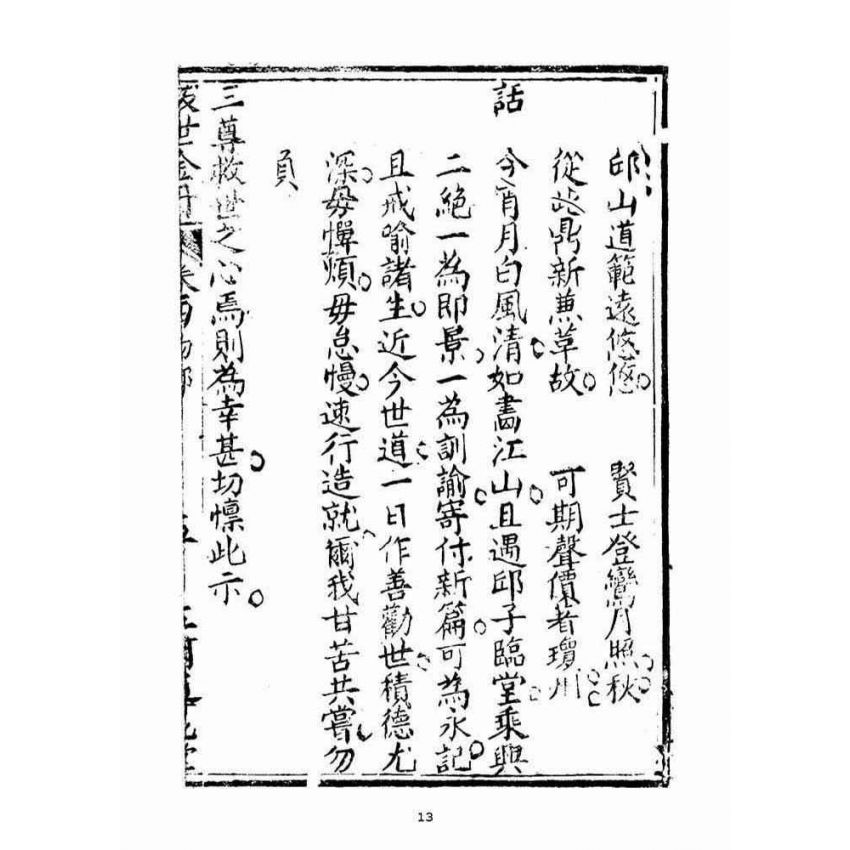 邱山道範遠悠悠 賢士登鸞月照秋
從此鼎新兼革故 可期聲價着瓊州
話
今宵月白風清如畵江山且遇邱子臨堂乘興
二絕一為即景一為訓諭寄付新篇可為永記
且戒喻諸生近今世道一日作善勸世積德尤
深毋憚煩毋怠慢速行造就爾我甘苦共嘗勿
負
三尊救世之心焉則為幸甚切懍此示
世金丹 卷
13